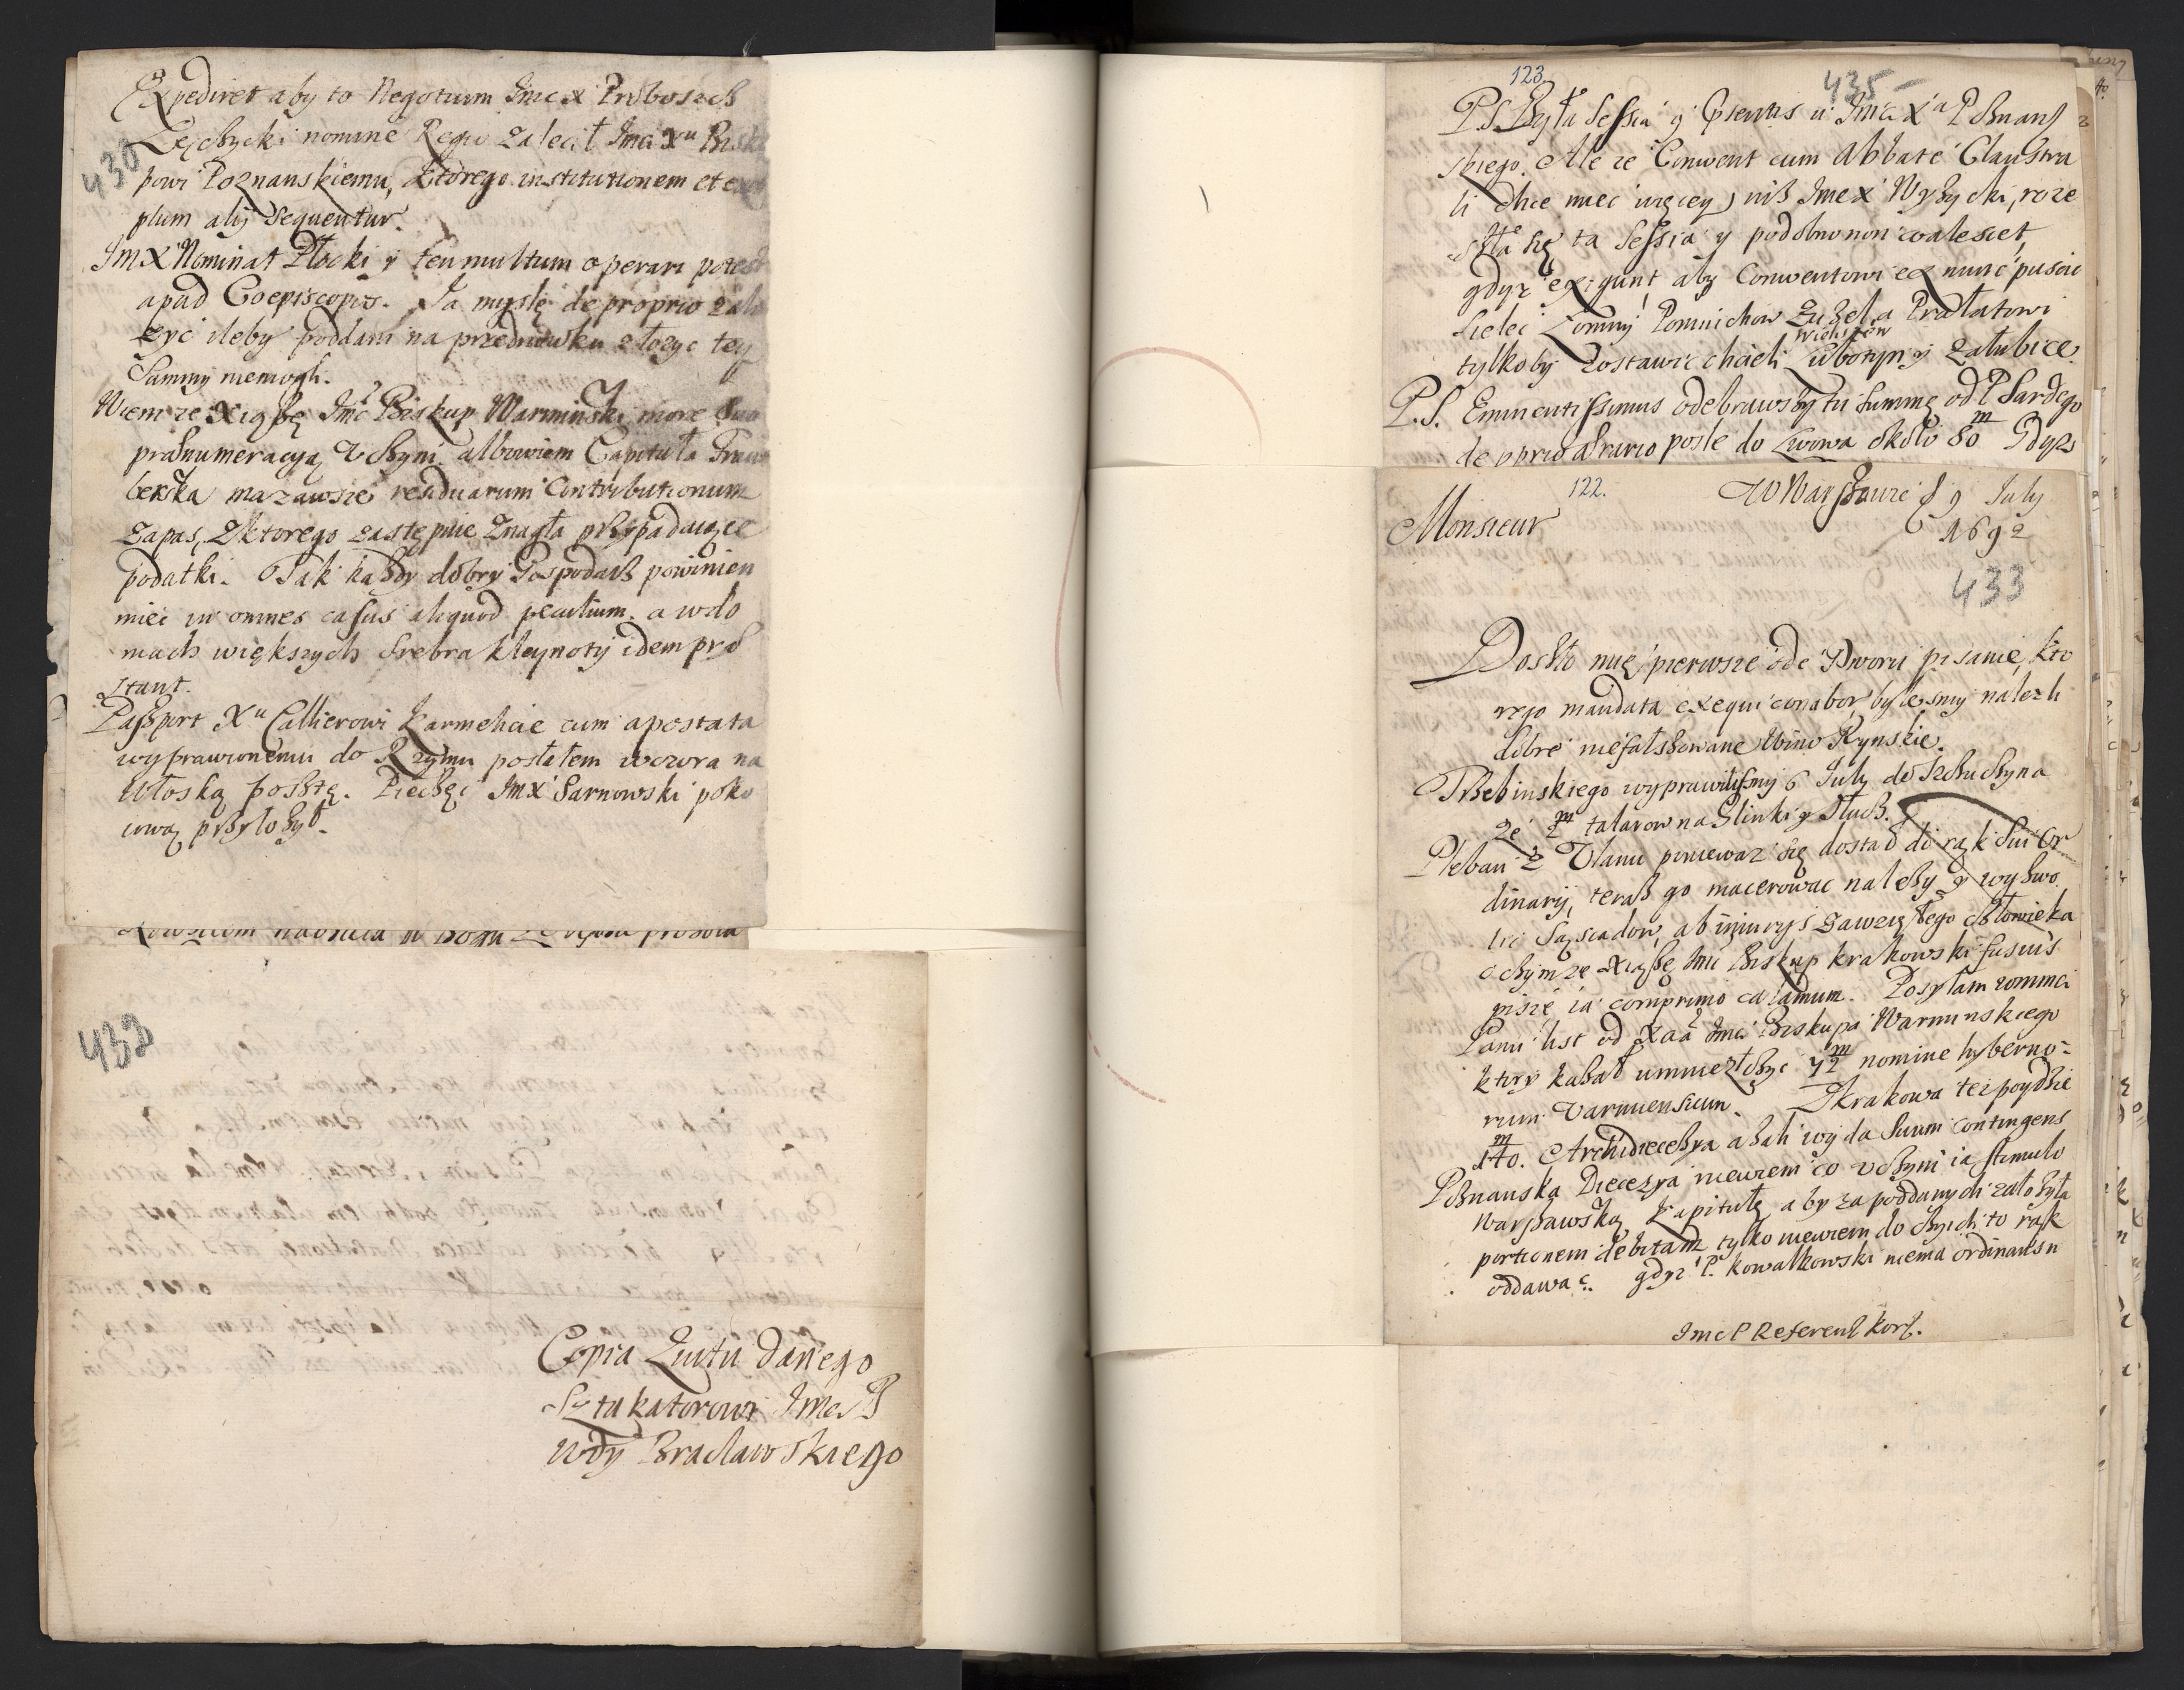 430
Expediret aby to Negotium Jmc X Proboszcz
Lęczycki nomine Regio zalecił Jmci Xu Bisku
powi Poznanskiemu, którego institutionem et ex
plum alij sequentur.
JmX Nominat Płocki y ten multum operari potest
apud Coepiscopos. Ja myslę de proprio zało
zyć ileby poddani na przednowku złozyc tey
Summy niemogli.
Wiem ze Xiąbę Jmc Biskup Warminski more suo
praenumeracyą vczyni albowiem Capituła Frauen
berska ma zawsze residuarum Contributionum
zapas, zktorego zastępuie znagła przypadaiące
podatki. Tak kazdy dobry Gospodarz powinien
mieć in omnes casus aliquod peculium. a wdo
mach większych Srebra Kleynoty idem prae
stant.
Paszport Xu Callierowi Karmelicie cum apostata
wyprawionemu do Rzymu posłałem wczora na
Włoską posztę. Pieczęć JmX Sarnowski poko
iową przyłozył.
433
Copia Quitu danego
Sztukatorowi Jmc P
Wdy Bracławskiego
123
435
P.S. Była Sessia y Consensus u Jmci Xa Poznan
skiego. Ale ze Conwent cum Abbate Claustra
li chce miec więcey niz Jmc X Wyzycki, roze
szła się ta Sessia y podobno non coalescet,
gdyz exigunt aby Conwentowi ex nunc puscić
Sielec Łomny Pomnichow Zuzel a Prałatowi
Wieliszew
tylkoby zostawic chcieli Ubotyp y Załubice.
P.S. Eminentissimus odebrawszy tu summę od P Sardego
de pprio aerario posle do Lwowa około 80 m Gdyz
122.
W Warszawie d 9 July
1692
Monsieur
433
Doszło mię pierwsze ode Dworu pisanie, kto
rego mandata exequi conabor, bylesmy nalezli
dobre niefałszowane Wino Rynskie.
Trzebinskiego wyprawilismy 6 July do Szczuczyna
ze 2 m talarow na Glinki y Słucz.
Pleban z Vlanu poniewaz się dostał do rąk sui Or
dinarij, teraz go macerowac nalezy y wyzwo
lic Sąsiadow ab iniurijs zawziętego człowieka
o czym ze Xiąbę Jmc Biskup krakowski fusius
pisze ia comprimo calamum. Posyłam wmmci
Panu list od Xaa Jmci Biskupa Warminskiego
ktory kazał umnie zliczyć 42 m nomine hyberno=
rum Varmiensium. Zkrakowa tez poydzie
140 m. Archidiecezya a zali wyda suum contingens
Poznanska Diecezya niewiem co vczyni ia stimulo
Warszawską Kapitułę aby za poddanych załozyła
portionem debitam, tylko niewiem do czyich to rąk
oddawać. gdyz P. Kowalkowski niema ordinansu
Jmc P Referend Kor.